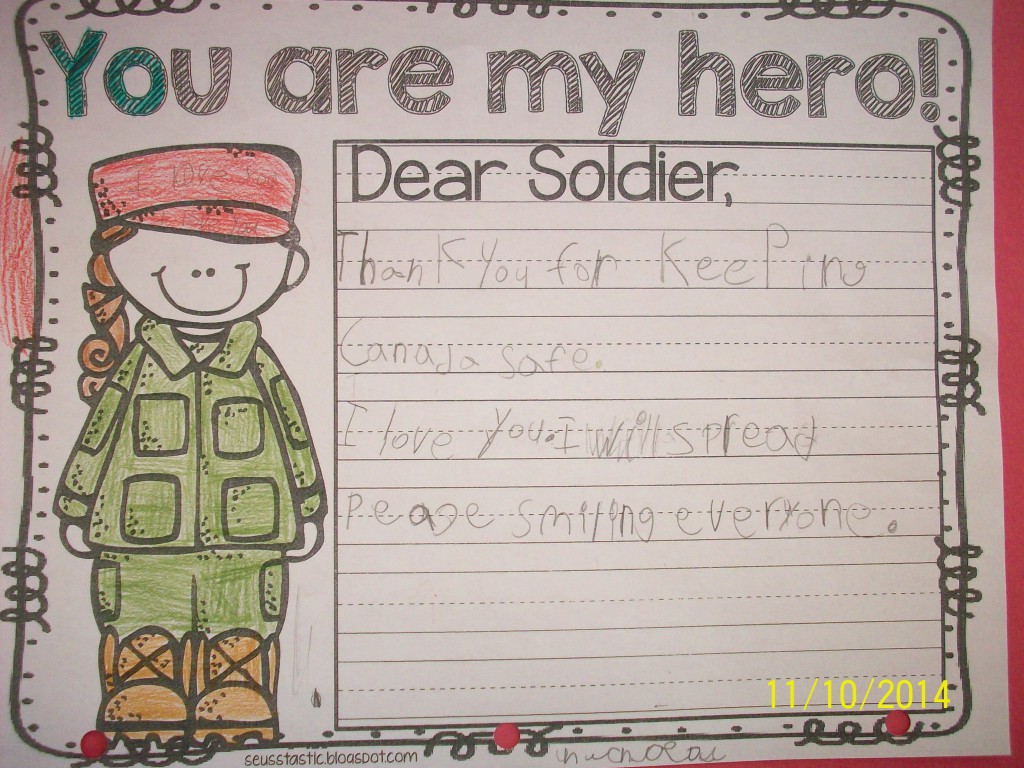 You are my hero!
I love
Dear Soldier,
Thank You for KeePing
Canada safe.
I love You. I will spread
Peace smiling everyone.
11/10/2014
seusstastic.blogspot.com